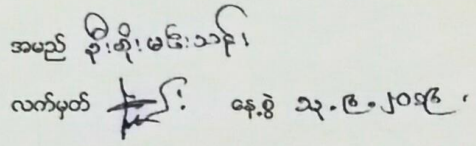 အမည် ဦးစိုးမင်းသန်း
လက်မှတ် နေ့စွဲ ၁၃.၉.၂၀၁၆